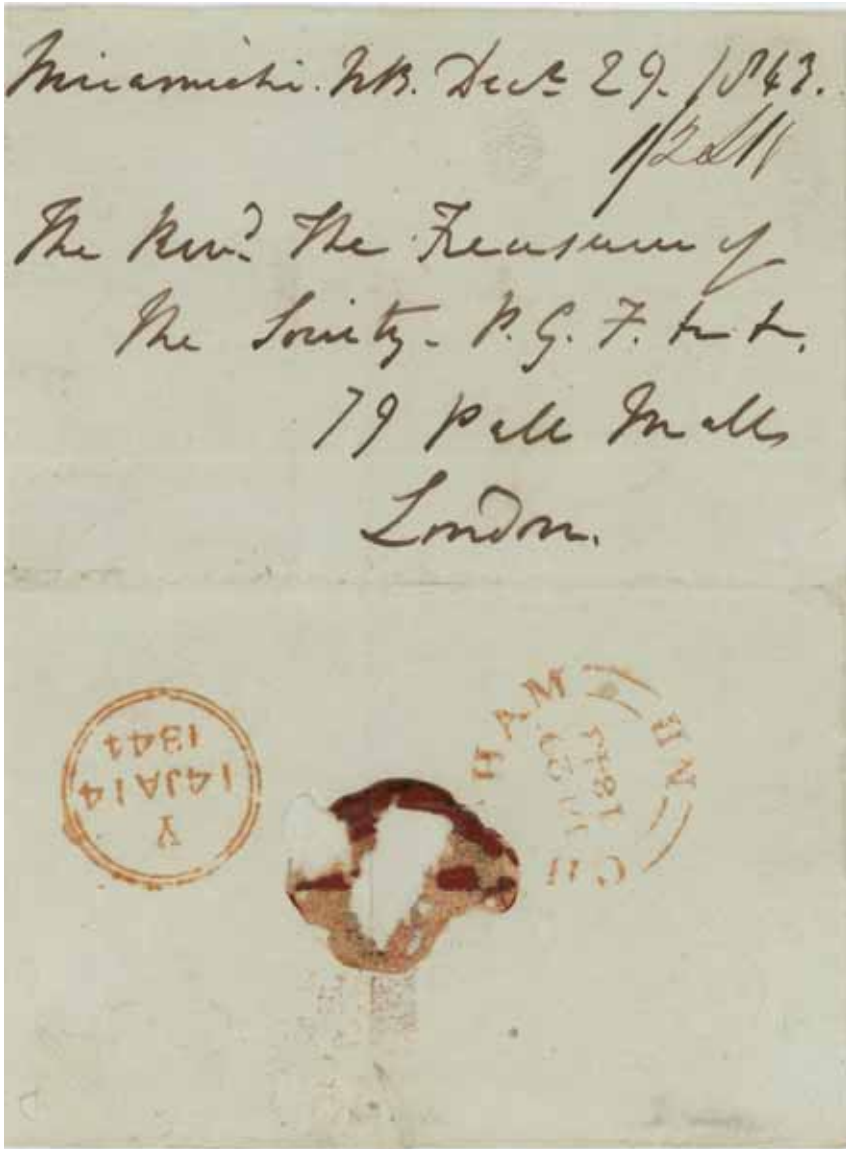 Miramichi. NB. Decr 29. 1843.
1/2
The Revd. The Treasurer of
The Society - P. G. F. &c &c.
79 Pall Mall
London.
Y
14JA14
1844
CHAM
NB